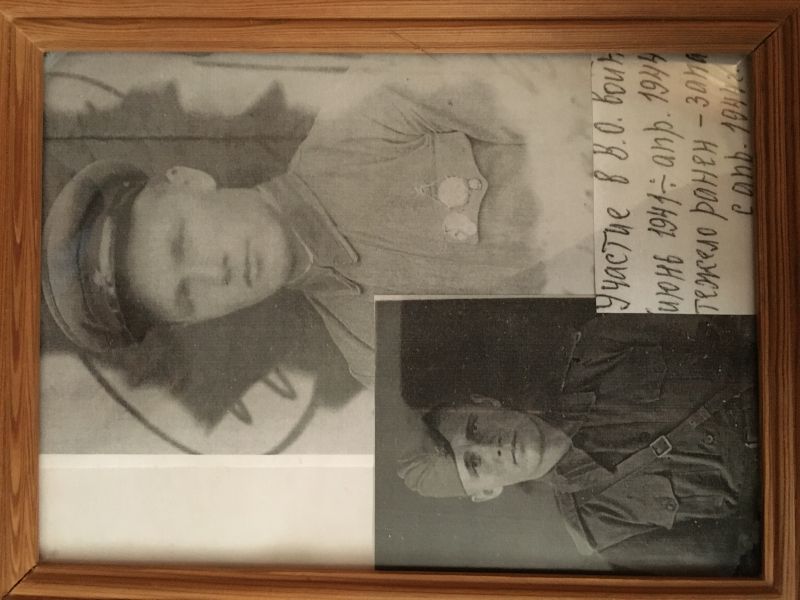 Участие в В.О. воин
июнь 1941 ÷ апр. 1944
тежело ранен - запа
с апр. 194